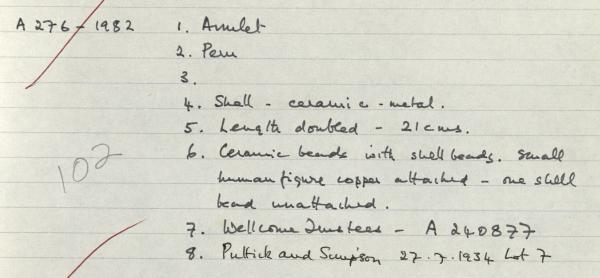 A 276 - 1982 1. Amulet
2. Peru
3.
4. Shell - ceramic - metal.
5. Length doubled - 21cms.
6. Ceramic beads with shell beads. Small
human figure copper attached - one shell
bead unattached.
102
7. Wellcome Trustees - A 240877
8. Puttick and Simpson 27.7.1934 Lot 7